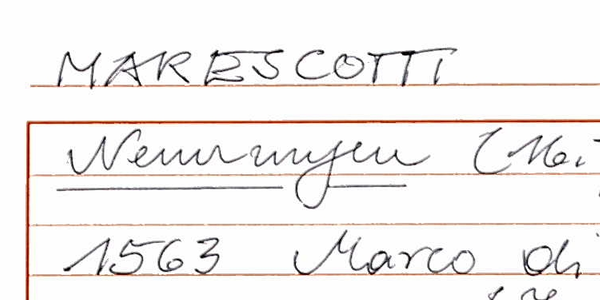 MARESCOTTI
Nennungen (Mei
1563 Marco di